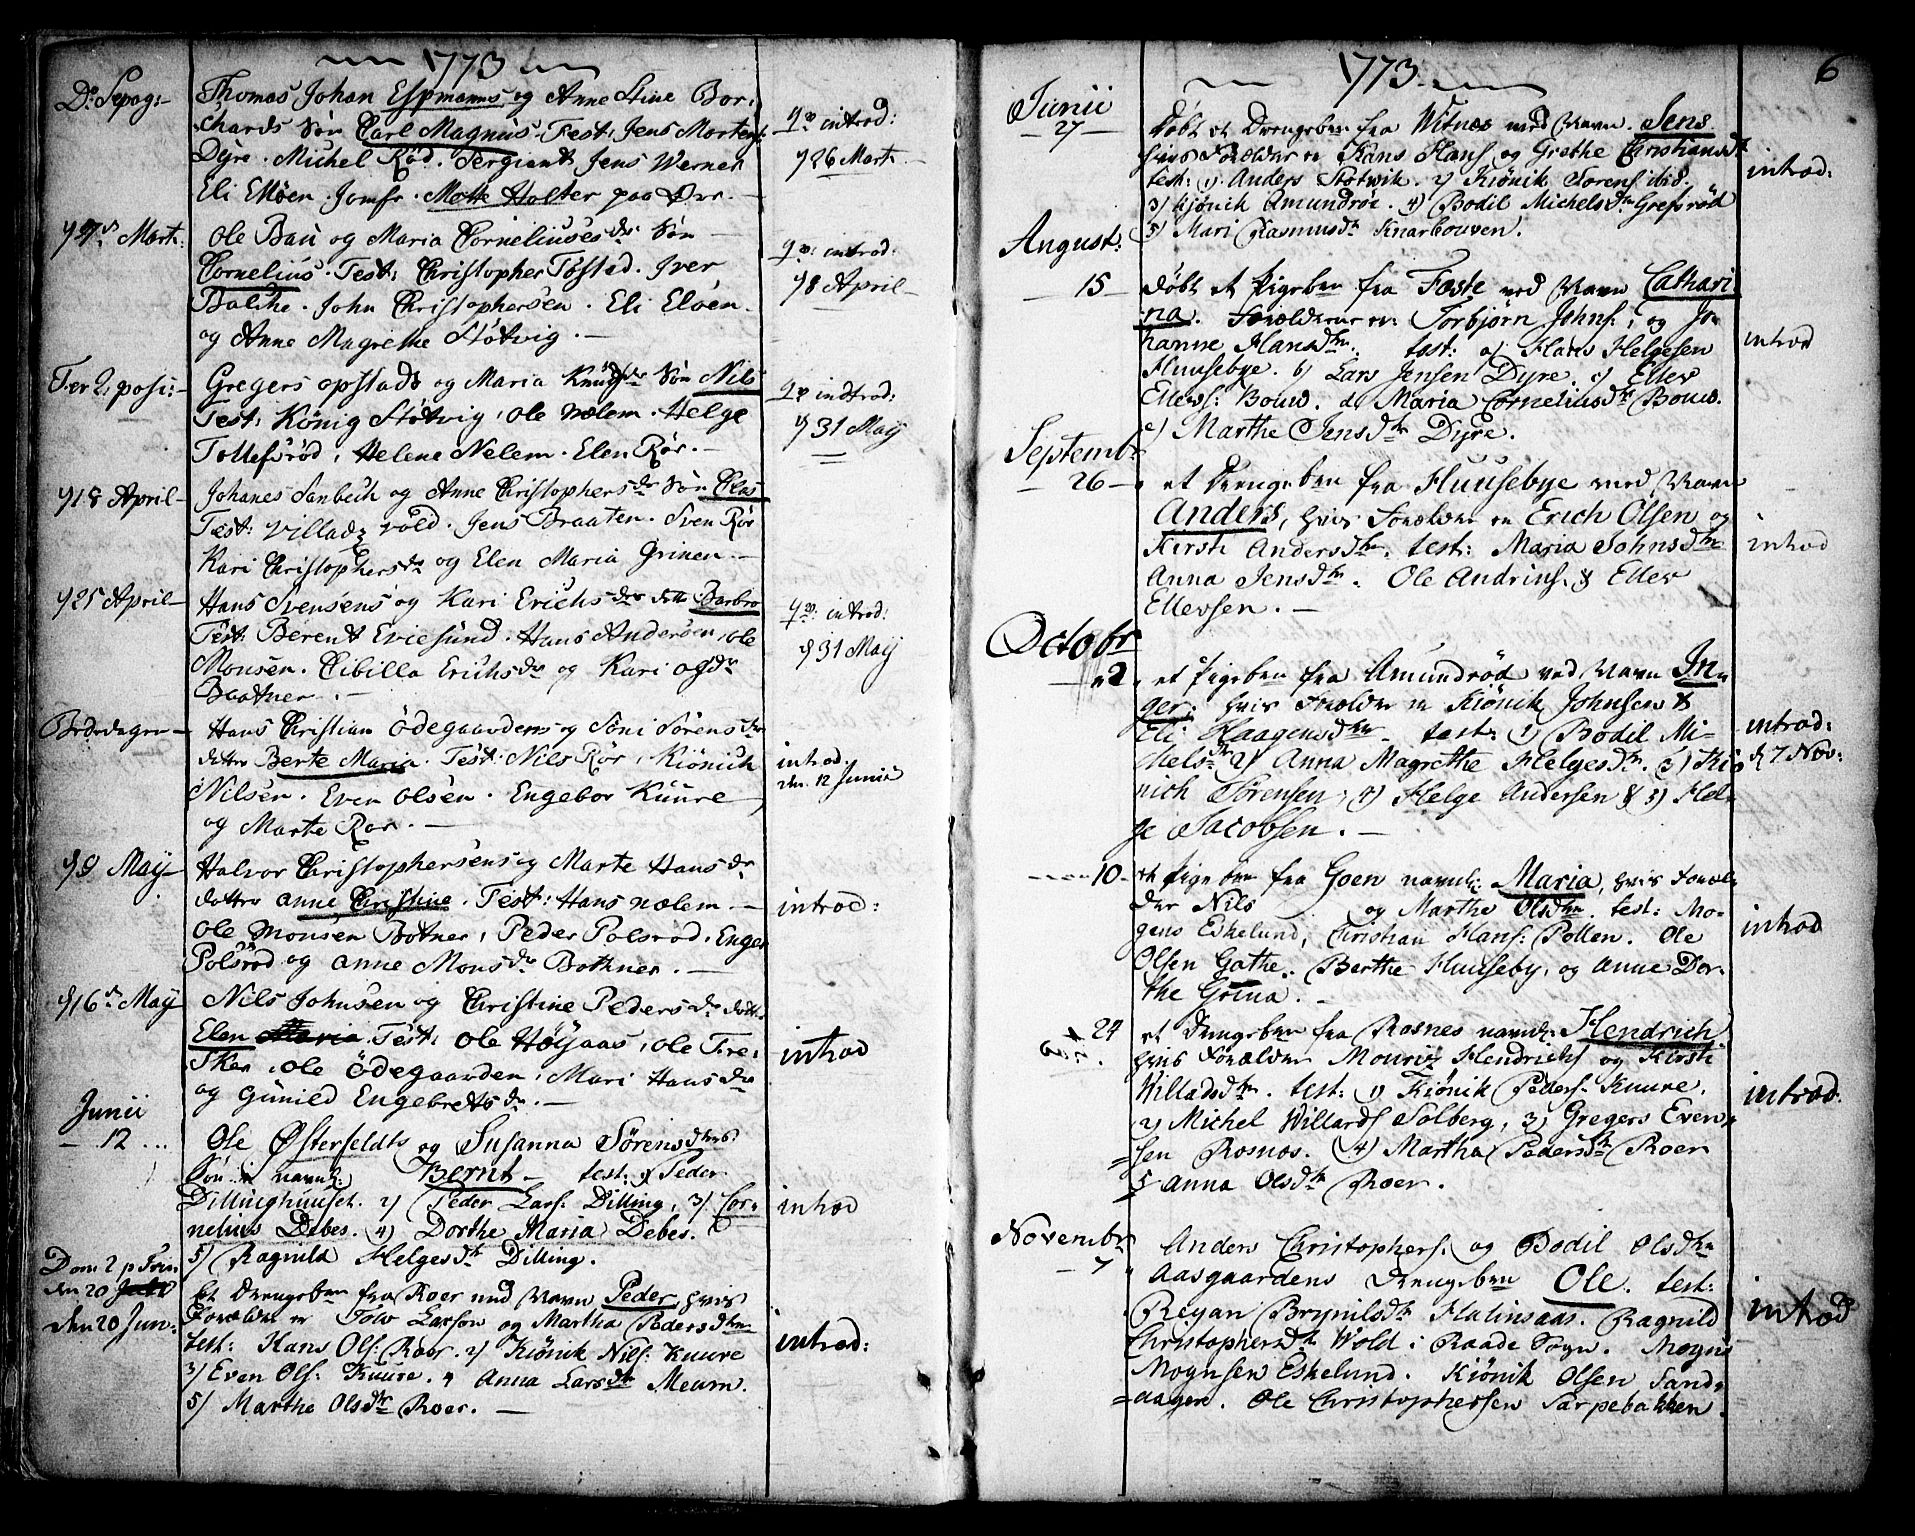 1773
D: Sepag:
Thomas Johan Espmanns og Anne Stine Bor:
chards Søn Carl Magnus. Test: Jens Mortens:
Dyre. Michel Rød. Sergiant Jens Werner
Eli Elløen. Jomfr. Mette Holter paa
introd:
26 Mart.
Mart:
Ole Bau og Maria Corneliuses dr Søn
Cornelius. Test: Christopher Tøstad. Iver
Balche. John Christophersen. Eli Eløen.
og Anne Magrethe Støtvig.
introd:
8 April
Fer 2. posi:
Gregers opstads og Maria Knuds dr Søn Nils
Test: König Støtvig, Ole Nælem. Helge
Tollefsrød, Helene Nelem. Elen Rør.
indtrod:
31 Maij
18 April
Johanes Sanbech og Anne Christophers dr Søn Clas
Test: Villadz vold. Jens Braaten. Sven Rør
Kari Christophers dr og Elen Maria Grinen.
25 April
Hans Svensens og Kari Erichs dr dotter Barbro
Test: Berent Eviesund. Hans Andersen, ole
Monsen. Cibilla Erichs dr og Kari ogs dr
Baatner.
introd:
31 Maij
Bededagen
Hans Christian Ödegaardens og Soni Sörens dr
dotter Berte Maria. Test: Nils Rør, Kiönich
Nilsen. Even Olsen. Engebor Kuure
og Marte Ror.
introd:
den. 12 Junii
9 Maÿ
Halvor Christophersens og Marte Hans dr
dotter Anne Christine. Test: Hans nælem
ole Monsen Botner, Peder Polsrod. Enger
Polsröd og anne Mons dr Bothner.
introd:
16 Maij
Nils Johnsen og Christine Peders dr dotter
Elen Maria. Test: Ole Höÿaas, ole Tre:
sker, ole Ödegaarden, Mari Hans dr
og Gunild Engebrets dr.
introd
Junii
12
Ole Østerfeldts og Susanna Sörens dtrs
Søn navnl: Bernt test: Peder
Dillinghuuset. 2) Peder Lars: Dilling, 3) Cor:
nelius Debes. 4) Dorthe Maria Debes.
5) Ragnild Helgesdtr Dilling.
introd
Dom 2 p Trin
den 20
den 20 Jun:
Et Drengebn fra Roer med Navn Peder hvis
Forældre er Tolv Larson og Martha Pedersdtr
test: Hans Ols: Roer. 2) Kiönik Nils: Kuure
3) Even Ols: Kuure. 4 Anna Larsdtr Meum.
5) Marthe Olsdtr Roer.
introd:
1773
6
Junii
27
Døbt et Drengebn fra Witnes med Navn. Jens
hvis Forældre er Hans Hans: og Grethe Christiansdtr
test: 1) Anders Støtwik. 2) Kiönik Sorens: ibid.
3) Kjönik Amundrøe. 4) Bodil Michelsdtr Grefsrød
5) Mari Rasmusdtr Knarbouven.
introd:
August:
15
Døbt et Pigebn fra Feste ved Navn Cathari
na. Forælderne er: Torbjørn Johns: og Jo:
hanne Hansdtr. test: a) Hans Helgesen
Huusebye. b) Lars Jensen Dyre. c) Ellev
Ellevs: Bouw. d. Maria Corneliusdtr Bouw.
e) Marthe Jensdtr Dyre.
introd
Septembr
26
et Drengebn fra Huusebye med Navn
Anders, hvis Forældre er Erich Olsen og
Kirsti Andersdtr. test: Maria Johnsdtr
Anna Jensdtr. Ole Andrins: & Ellev
Ellevsen.
introd
Octobr
2.
et Pigebn fra Amundrød ved Navn In:
ger, hvis Forældre er Kiönik Johnsen &
Eli Haagensdtr. test: 1) Bodil Mi:
chelsdtr 2) Anna Magrethe Helgesdtr. 3) Kiö
nich Sörensen, 4) Helge Andersen & 5) Hel:
ge Jacobsen.
introd:
d 7 Nov:
10
et Pigebn fra Goen navnl: Maria, hvis Foræl:
dre Nils og Marthe Olsdtr. test: Mo:
gens Eskelund, Christian Hans: Pollen. Ole
Olsen Gathe. Berthe Huuseby, og Anne Dor:
the Grina.
introd
24
et Drengebn fra Rosnes navnl: Hendrich
hvis Forældre Mouriz Hendrichs og Kirsti
Willadsdtr. test: 1) Kiönik Peders: Kuure.
2) Michel Willards Solberg, 3) Gregers Even:
sen Rosnos. 4) Martha Pedersdtr Roer
5 Anna Olsdtr Roer.
introd.
Novembr
7
Anders Christophers: og Bodil Olsdtr
Aasgaardens Drengebn Ole. test:
Regan Brynilsdtr Halinsaas. Ragnild
Christophersdtr Wold i Raade Sogn. Mogns
Mognsen Eskelund. Kiönik Olsen Sand:
aagen. Ole Christophersen Sarpebakken.
introd